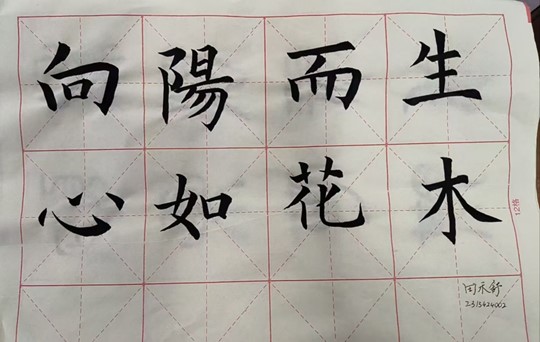 向陽而生
心如花木
12格
2315424002